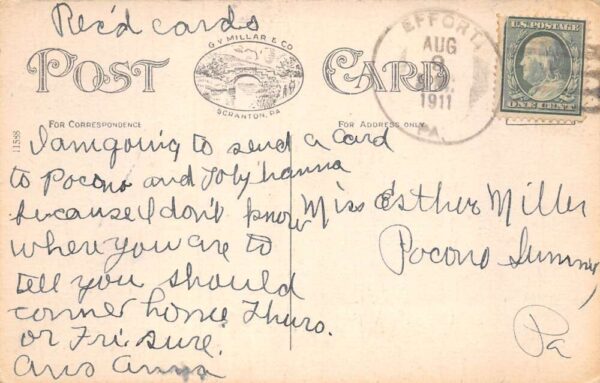 Rec'd cards
POST CARD
G V MILLAR & CO
SCRANTON, PA
EFFORT,
AUG
1911
PA.
U.S. POSTAGE
ONE CENT
FOR CORRESPONDENCE
FOR ADDRESS ONLY
11588
I am going to send a card
to Pocono and Toby hanna
because I don't know
where you are to
tell you should
comer home Thurs.
or Fri. sure.
Ans Anna
Miss Esther Miller
Pocono Summit,
Pa